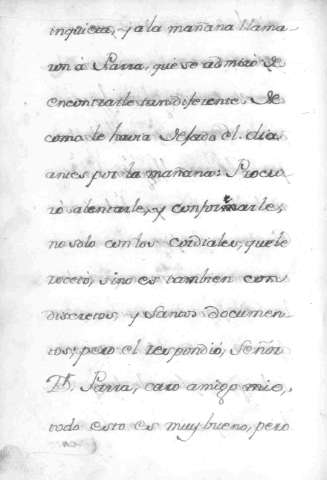 inquieta, y a la mañana llama-
ron á Parra, que se admiró de
encontrarle tan diferente. de
como le havia dejado el dia
antes por la mañana: Procu-
ró alentarle, y conformarle,
no solo con los cordiales, que le
recetó, sino es tambien con
discretos, y Santos documen-
tos; pero el respondió, Señor
Dr. Parra, caro amigo mio,
todo esto es muy bueno, pero